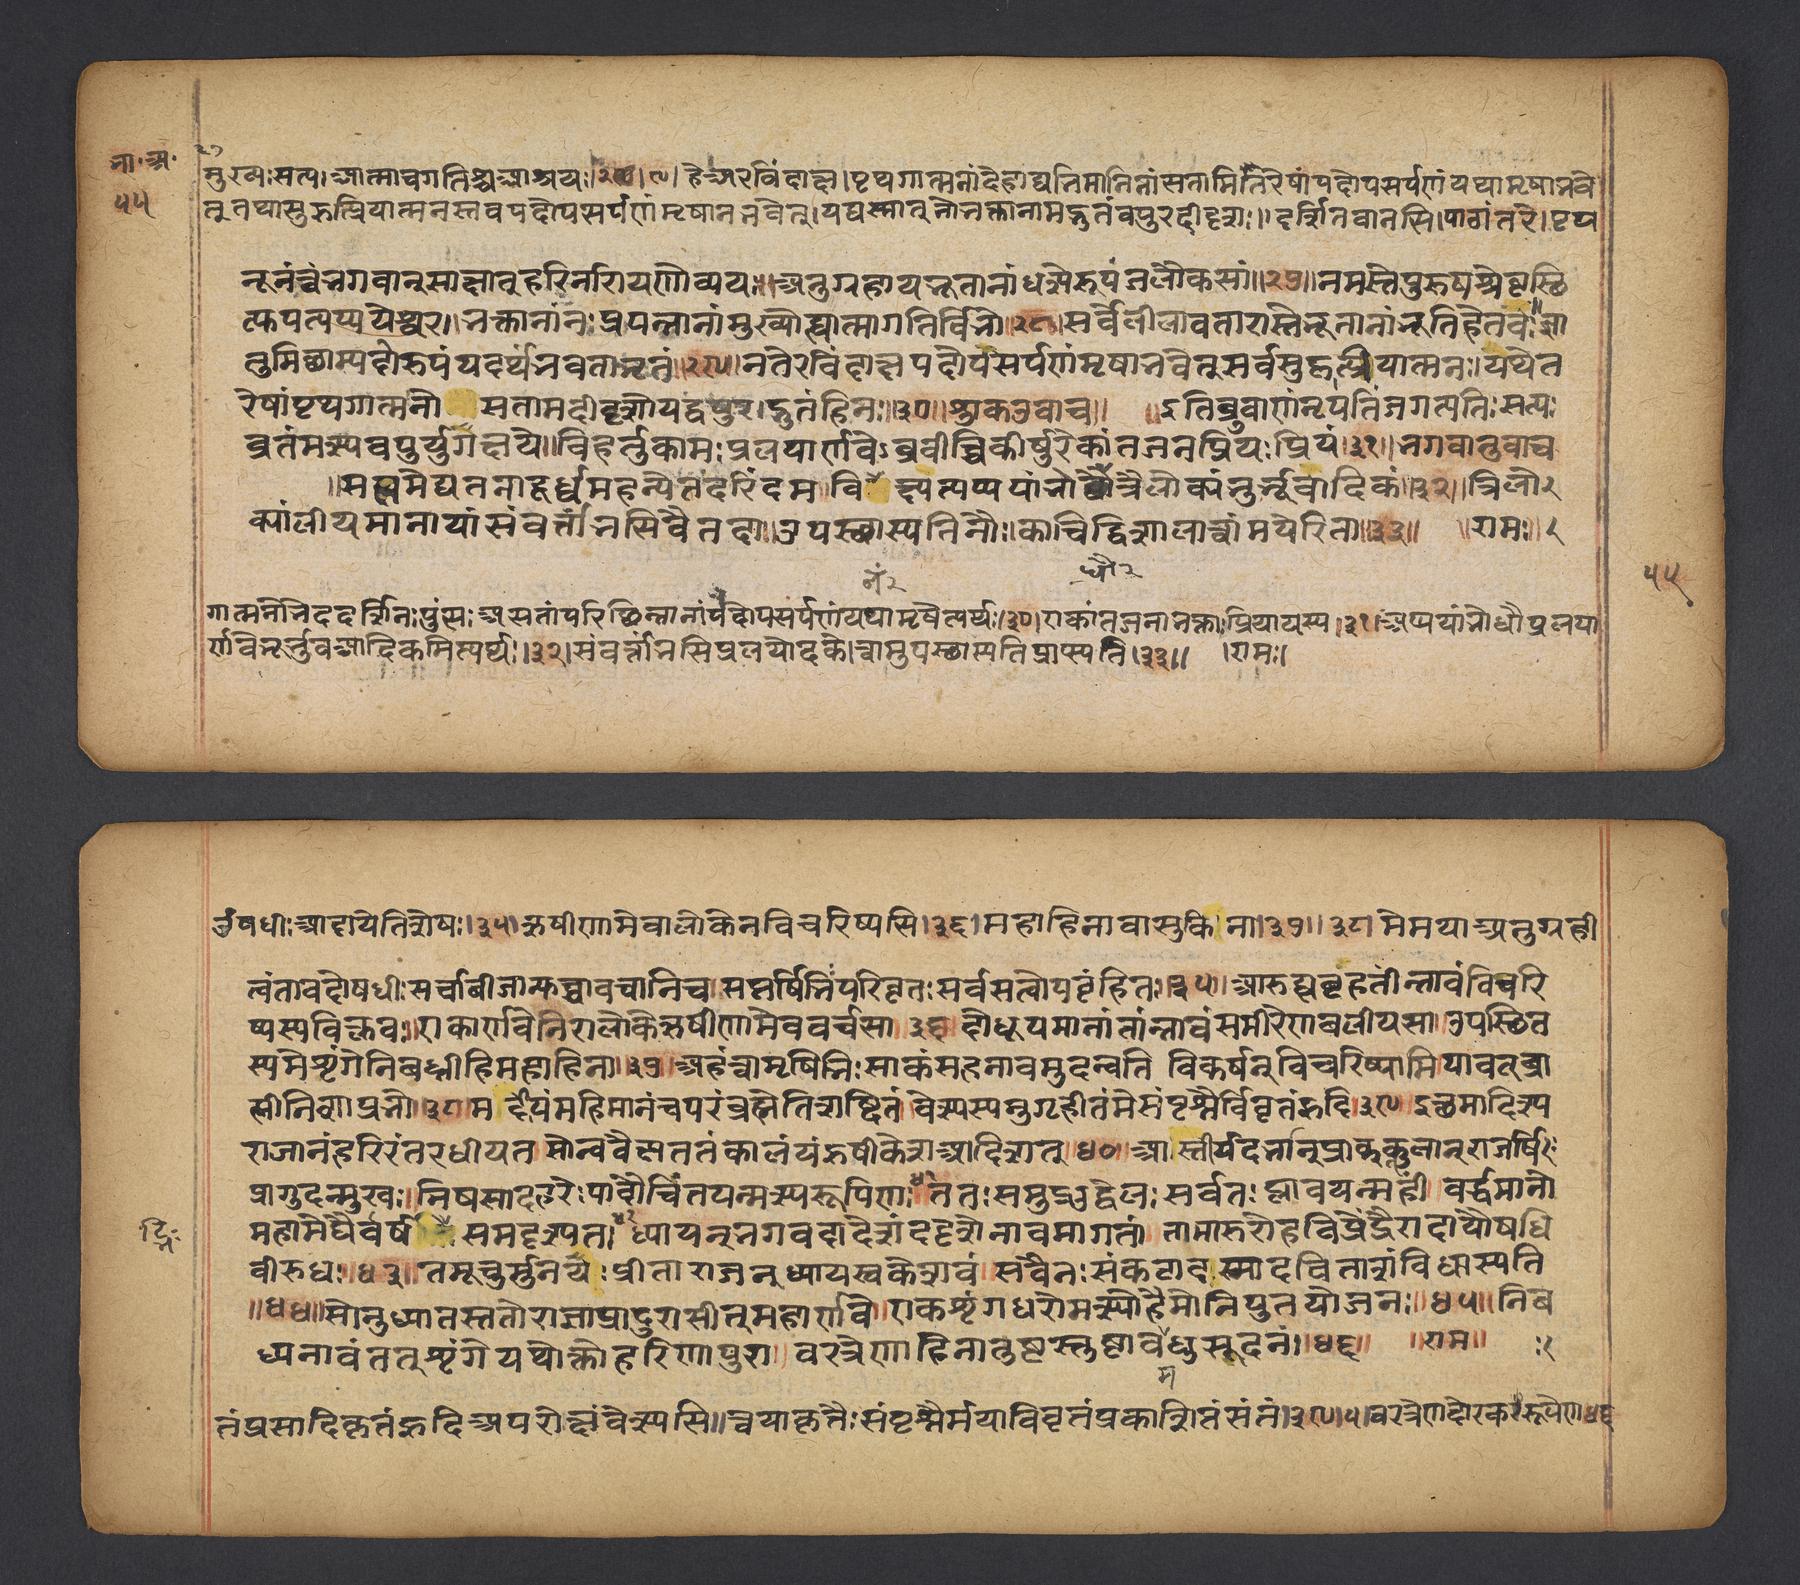 भा॰अ॰
५५
मुख्यः सत्य। आत्मा च गतिश्च आश्रयः। २८। हे अरविंदाक्ष। पृथगात्मनां देहाद्यभिमानिनां सतामितरेषां पदोपसर्पणं यथा मृषा भवे
त् तथा सुहृत्प्रियात्मनस्तव पदोपसर्पणं मृषा न भवेत्। यद्यस्मात् नो भक्तानामद्भुतं वपुरदीदृशः॥ दर्शितवानसि। पाठांतरे। पृथ
नूनं त्वं भगवान् साक्षात् हरिर्नारायणोव्ययः॥ अनुग्रहाय भूतानां धत्से रूपं जलौकसां॥२७॥ नमस्ते पुरुषश्रेष्ठ स्थि
त्युत्पत्यप्ययेश्वर॥ भक्तानां नः प्रपन्नानां मुख्यो ह्यात्मागतिर्विभो॥२८॥ सर्वे लीलावतारास्ते भूतानां भूतिहेतवः॥ ज्ञा
तुमिच्छाम्यदो रूपं यदर्थं भवता भृतं॥२९॥ न तेरविंदाक्ष पदोपसर्पणं मृषा भवेत् सर्वसुहृत्प्रियात्मनः॥ यथेत
रेषां पृथगात्मनां सतामदीदृशो यद्वपुरद्भुतं हि नः॥३०॥ शुक उवाच॥ इति ब्रुवाणं नृपतिं जगत्पतिः सत्य
व्रतं मत्स्यवपुर्युगक्षये॥ विहर्तुकामः प्रलयार्णवेऽब्रवीच्चिकीर्षुरेकांतजनप्रियः प्रियं॥३१॥ भगवानुवाच
॥सप्तमेद्यतनादूर्ध्वमहन्येतदरिंदम॥ निमंक्ष्यत्यप्ययांभोधौ त्रैलोक्यं भूर्भुवादिकं॥३२॥ त्रिलो२
क्यां लीयमानायां संवर्ताभसि वै तदा॥ उपस्थास्यति नौः काचिद्विशाला त्वां मयेरिता॥३३॥ ॥रामः॥
५५
गात्मनोभिददर्शिनः पुंसः असतां परिच्छिन्नानां पदोपसर्पणं यथा मृषेत्यर्थः।३०। एकांतजना भक्ताः प्रिया यस्य।३१। अप्ययांभोधौ प्रलया
र्णवे भूर्भुवआदिकमित्यर्थः।३२। संवर्ताभसि प्रलयोदके। त्वामुपस्थास्यति प्राप्स्यति।३३॥ ।रामः।
ओषधीः आदायेतिशेषः।३५। ऋषीणामेवालोकेन विचरिष्यसि।३६। महाहिना वासुकिना।३७॥३८। मे मया अनुगृही
त्वं तावदोषधीः सर्वा बीजान्युच्चावचानि च॥ सप्तर्षिभिः परिवृतः सर्वसत्वोपबृंहितः॥३५॥ आरुह्य बृहतीं नावं विचरि
ष्यस्यविक्लवः॥ एकार्णवे निरालोके ऋषीणामेव वर्चसा॥३६॥ दोधूयमानां तां नावं समीरेण बलीयसा॥ उपस्थित
स्य मे शृंगे निबध्नीहि महाहिना॥३७॥ अहं त्वामृषिभिः साकं सहनावमुदन्वति॥ विकर्षन् विचरिष्यामि यावद्ब्रा
ह्मी निशा प्रभो॥३८॥ मदीयं महिमानं च परं ब्रह्मेति शब्दितं॥ वेत्स्यस्यनुगृहीतं मे संप्रश्नैर्विवृतं हृदि॥३९॥ इत्थमादिश्य
राजानं हरिरंतरधीयत॥ सोन्ववैक्षत तं कालं यं हृषीकेश आदिशत्॥४०॥ आस्तीर्य दर्भान् प्राक्कूलान् राजर्षिः
प्रागुदन्मुखः॥ निषसाद हरेः पादौ चिंतयन्मत्स्यरूपिणः॥ ततः समुद्र उद्वेलः सर्वतः प्लावयन्महीं॥ वर्द्धमानो
महामेघैर्वर्षद्भिः समदृश्यत॥ ध्यायन् भगवदादेशं ददृशे नावमागतां॥ तामारुरोह विप्रेंद्रैरादायौषधि
द्भिः
वीरुधः॥४३॥ तमूचुर्मुनयः प्रीता राजन् ध्यायस्व केशवं॥ स वै नः संकटादस्मादविता शं विधास्यति
॥४४॥ सोनुध्यातस्ततो राज्ञा प्रादुरासीन्महार्णवे॥ एकशृंगधरो मत्स्यो हैमो नियुतयोजनः॥४५॥ निब
ध्य नावं तत् शृंगे यथोक्तो हरिणा पुरा॥ वरत्रेणाहिना तुष्टस्तुष्टाव मधुसूदनं॥४६॥ ॥राम॥
तं प्रसादिकृतं हृदि अपरोक्षं वेत्स्यसि॥ त्वया कृतैः संप्रश्नैर्मया विवृतं प्रकाशितं संतं।३९। वरत्रेण दोरकरूपेण।४६